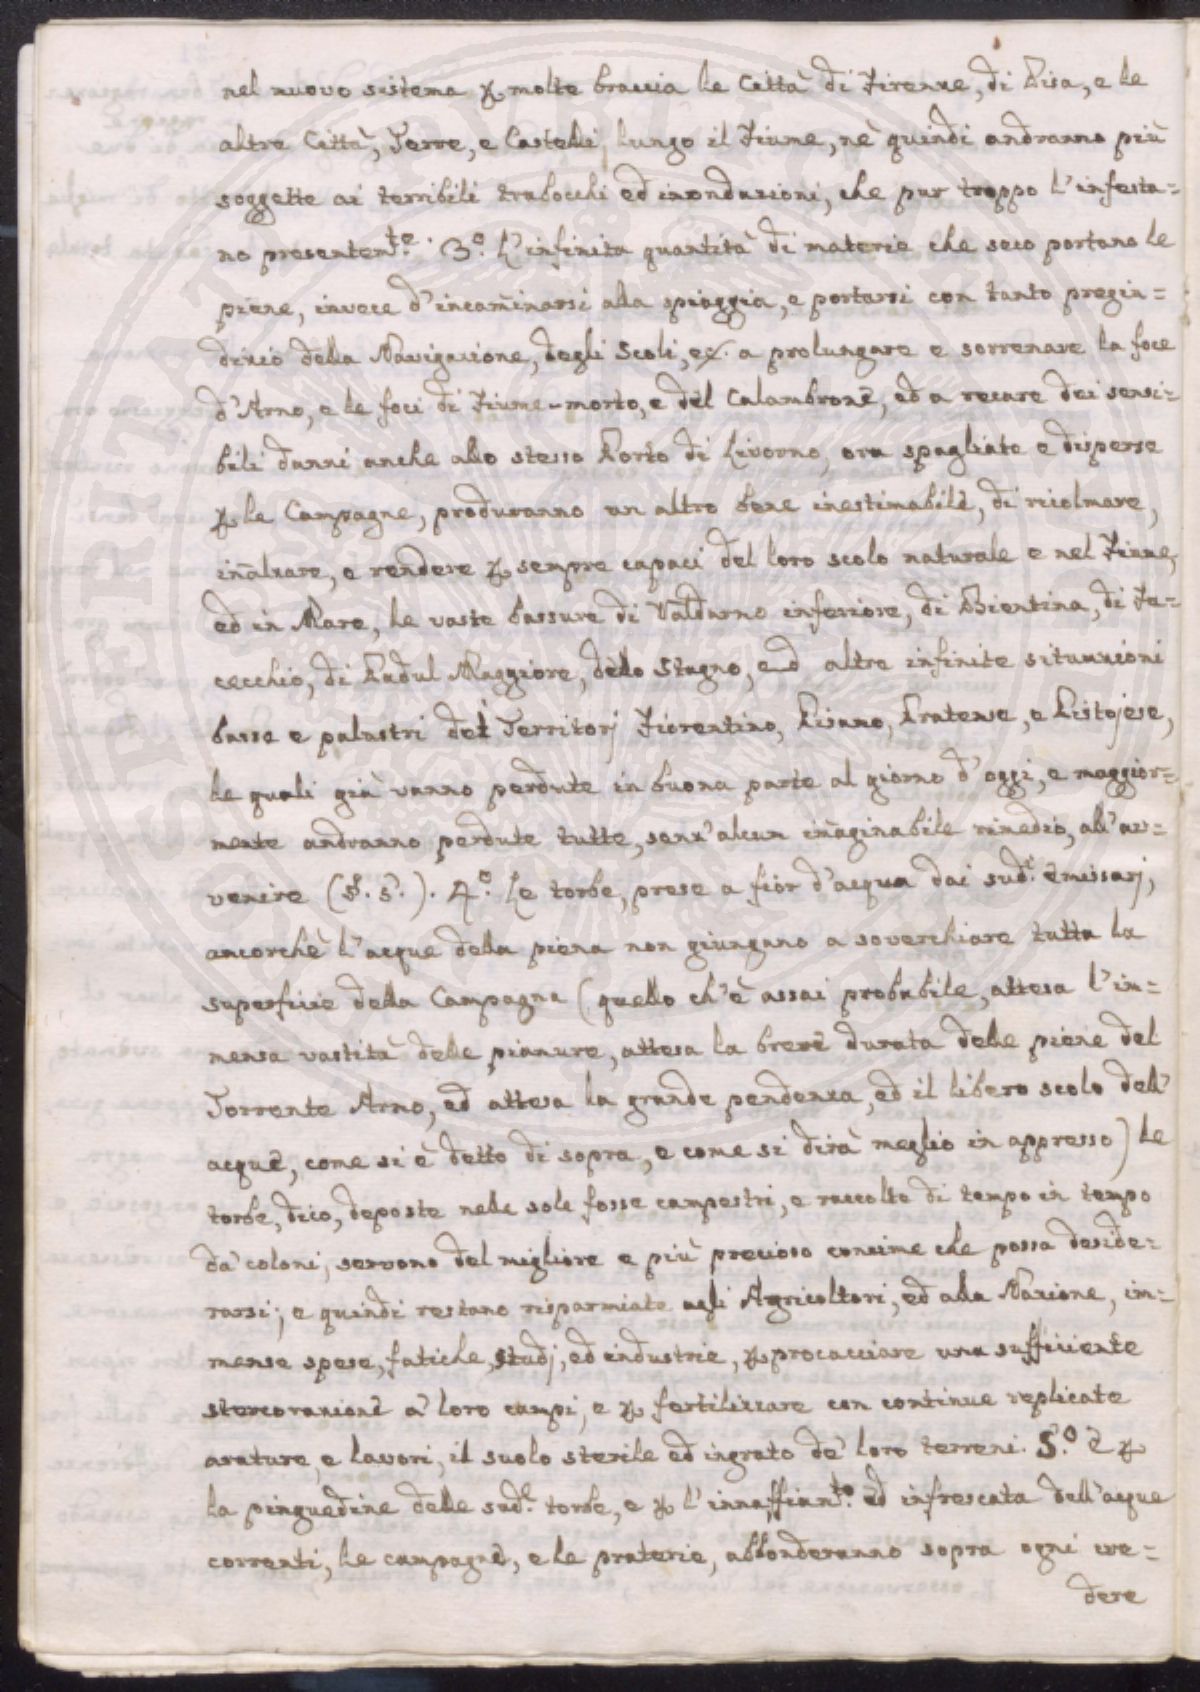 nel nuovo sistema ꝑ molte braccia le Città di Firenze, di Pisa, e le
altre Città, Terre, e Castelli lungo il Fiume, nè quindi andranno più
soggette ai terribili trabocchi ed inondazioni, che pur troppo l'infesta=
no presentemte. 3.º L'infinita quantità di materie che seco portano le
piene, invece d'incam̃inarsi alla spiaggia, e portarsi con tanto pregiu=
dizio della Navigazione, degli Scoli, ec. a prolungare e sorrenare la foce
d'Arno, e le foci di Fiume-morto, e del Calambrone, ed a recare dei sensi=
bili danni anche allo stesso Porto di Livorno, ora spagliate e disperse
ꝑ le Campagne, produranno un altro bene inestimabile, di ricolmare,
iñalzare, e rendere ꝑ sempre capaci del loro scolo naturale e nel Fiume,
ed in Mare, le vaste bassure di Valdarno inferiore, di Bientina, di Fu=
cecchio, di Padul Maggiore, dello Stagno, ed altre infinite situazioni
basse e palustri dei Territorj Fiorentino, Pisano, Pratense, e Pistojese,
le quali già vanno perdute in buona parte al giorno d'oggi, e maggior=
mente andranno perdute tutte, senz'alcun im̃aginabile rimedio, all'av=
venire (§. 5.). 4.º Le torbe, prese a fior d'acqua dai sudi. emissarj,
ancorchè l'acque della piena non giungano a soverchiare tutta la
superficie della Campagna (quello ch'è assai probabile, attesa l'im=
mensa vastità delle pianure, attesa la breve durata delle piene del
Torrente Arno, ed attesa la grande pendenza, ed il libero scolo dell'
acque, come si è detto di sopra, e come si dirà meglio in appresso) le
torbe, dico, deposte nelle sole fosse campestri, e raccolte di tempo in tempo
da' coloni, servono del migliore e più prezioso concime che possa deside=
rarsi; e quindi restano risparmiate agli Agricoltori, ed alla Nazione, im=
mense spese, fatiche, studj, ed industrie, ꝑ procacciare una sufficiente
stercorazione a' loro campi, e ꝑ fertilizzare con continue replicate
arature, e lavori, il suolo sterile ed ingrato de' loro terreni. 5.º E ꝑ
la pinguedine delle sude. torbe, e ꝑ l'innaffiamto. ed infrescata dell'acque
correnti, le campagne, e le praterie, abbonderanno sopra ogni cre=
dere